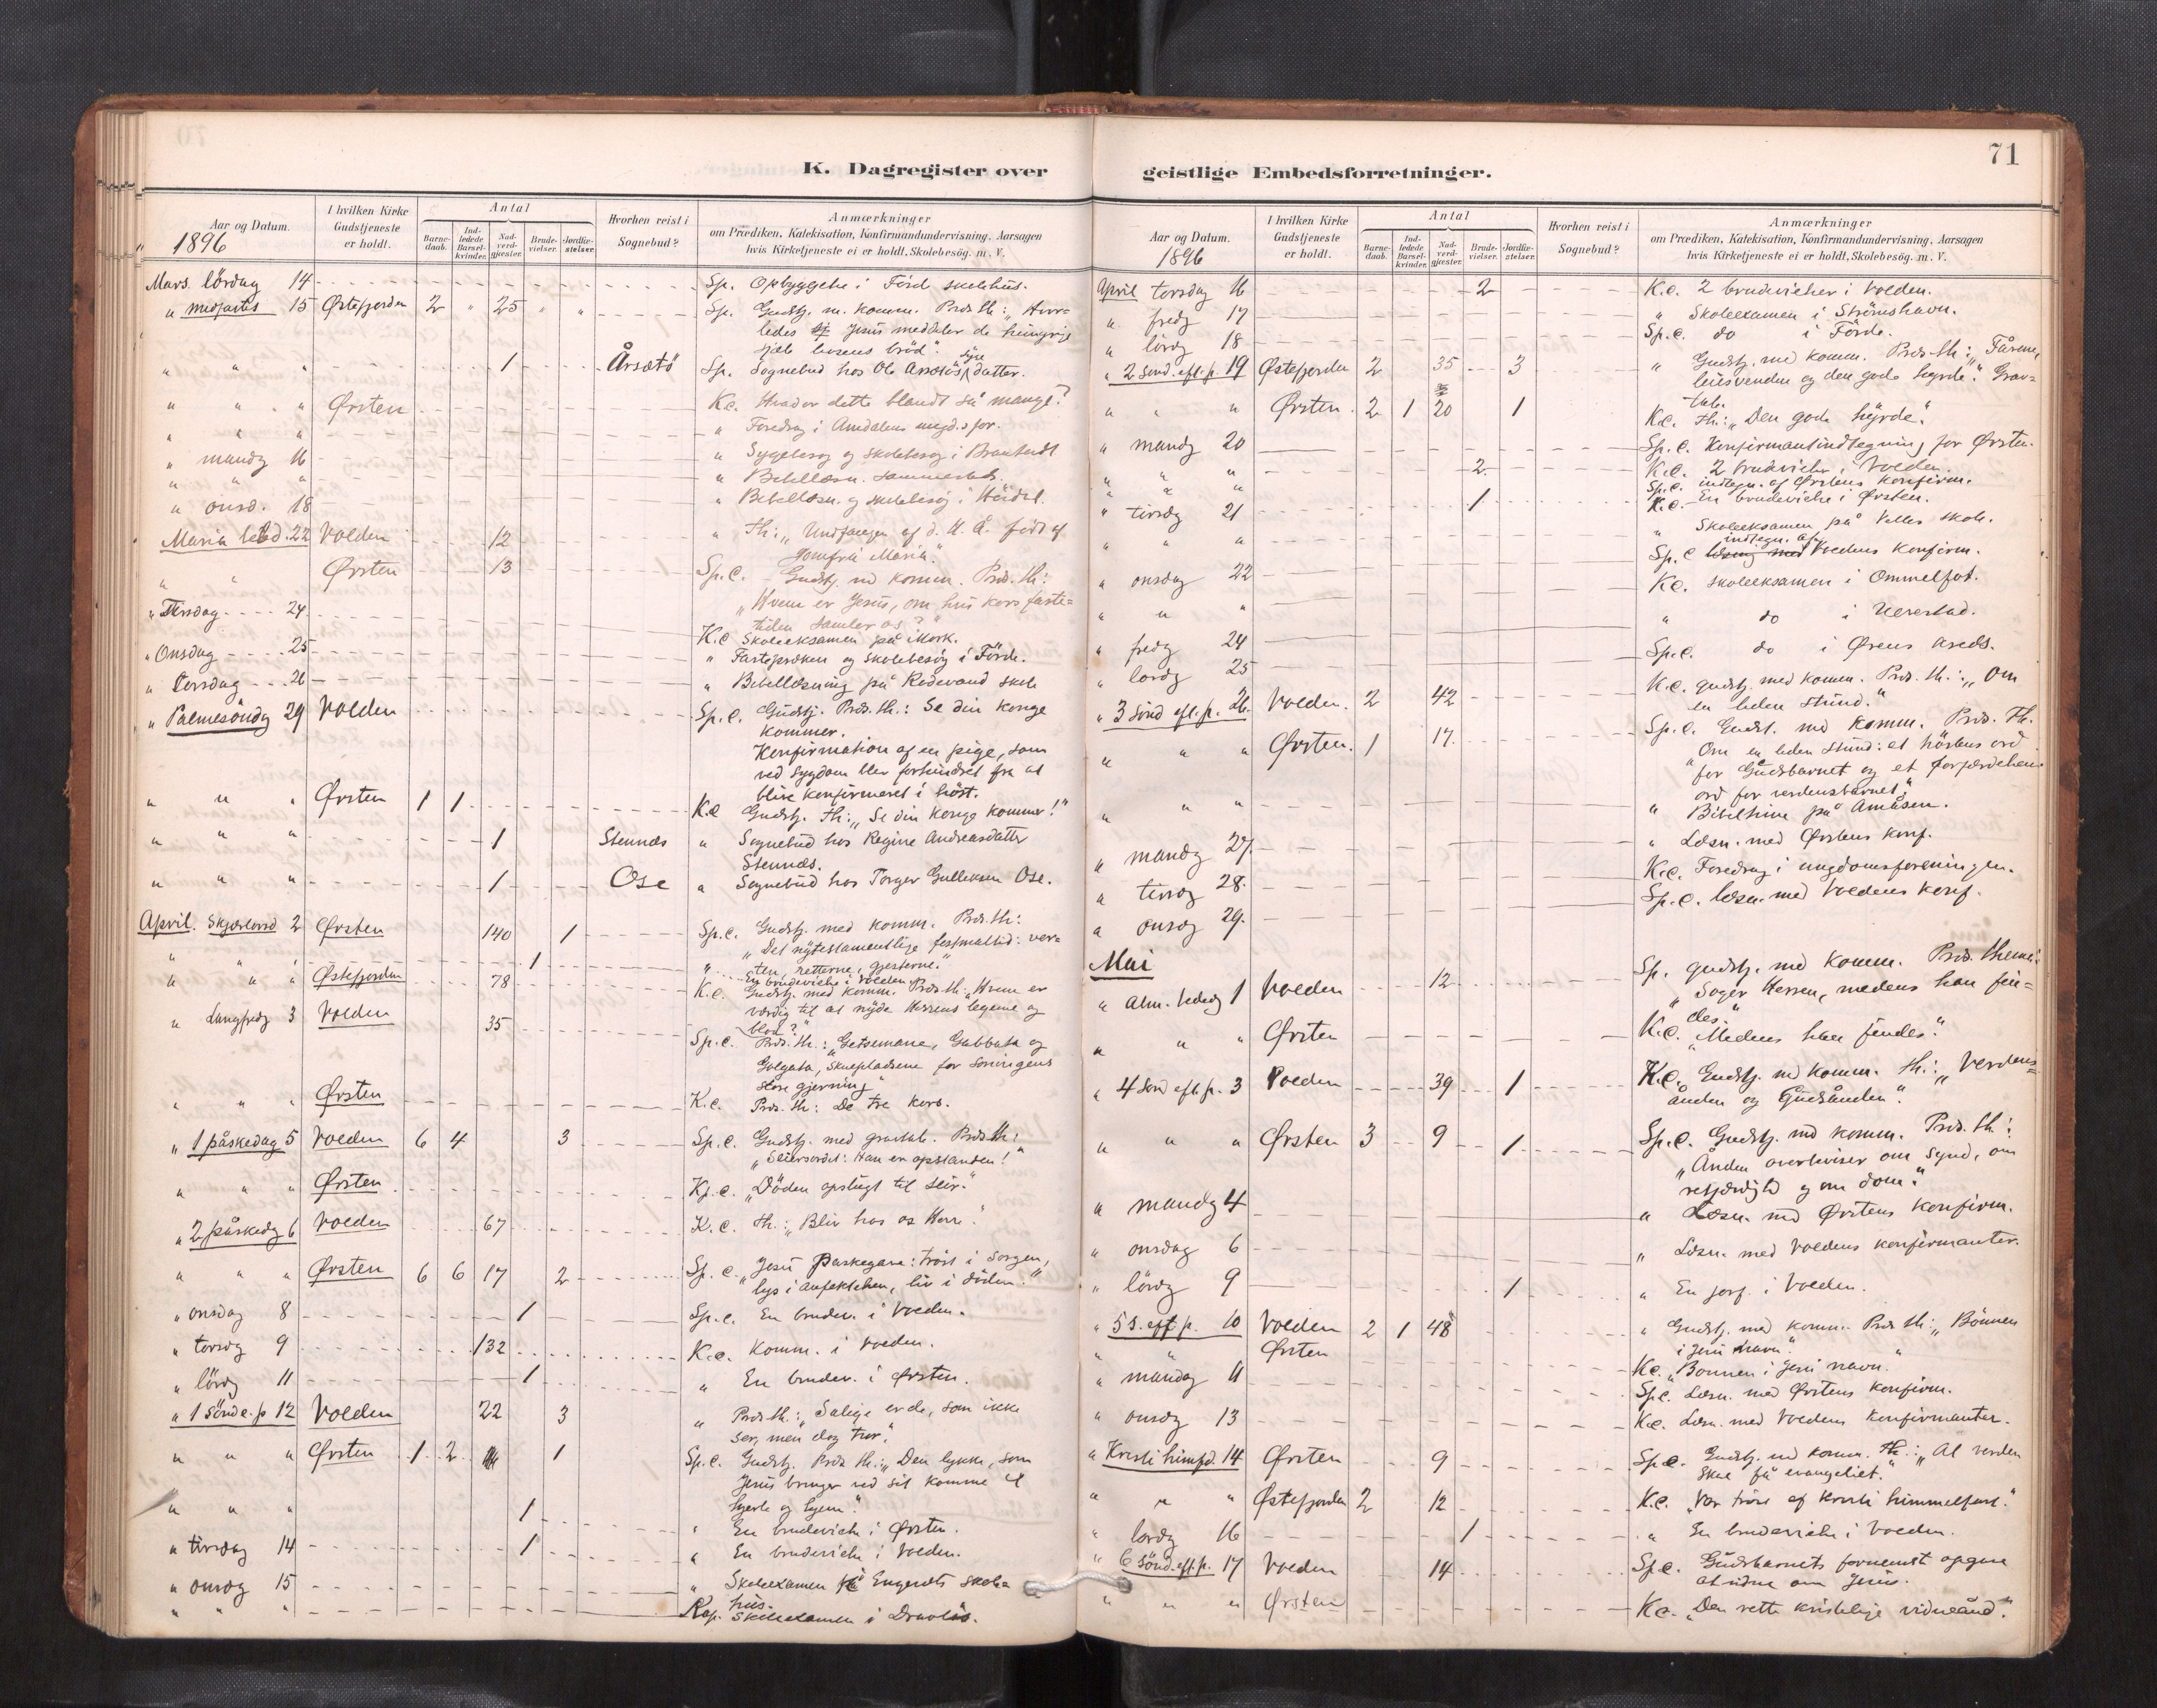 71
K. Dagregister over geistlige Embedsforretninger.
Aar og Datum. 1896
I hvilken Kirke Gudstjeneste er holdt.
Antal
Barne-daab. Ind-ledede Barsel-kvinder. Nad-verd-gjester. Brude-vielser. Jordfæ-stelser.
Hvorhen reist i Sognebud?
Anmærkninger
om Prædiken, Katekisation, Konfirmandundervisning, Aarsagen
hvis Kirketjeneste ei er holdt, Skolebesøg. m. V.
Mars. lördag 14 Sp. Opbyggelse i Förd skolehus.
" midfaste 15 Østefjorden 2 " 25 " " Sp. Gudstj. m. komm. Præd. th: "Hvor-
ledes Jesus meddeler de hungrige
livsens bröd".
" " " 1 Årsætö Sp. Sognebud hos Ole Årsætös datter.
" " " Ørsten K.c. Hvad er dette blandt så mange?
" " " " Foredrag i Åmdalens
" mandg 16 " Sygebesøg og skolebesøg i
" " " " Bibellæsn. sammesteds.
" onsd. 18 " Bibellæsn. og skolebesøg i
Maria bebd. 22 Volden 12 " Th: "Undfangen af d. H. Å. født af
Jomfru Maria".
" " Ørsten 13 Sp.c. Gudstj. md komm. Præd. th:
"Hvem er Jesus, om hvis kors faste-
tiden samler os?"
" Tirsdag 24 K.c Skoleeksamen på Mork.
" Onsdag 25 " Fastepræken og skolebesøg i Förde.
" Torsdag 26 " Bibellæsning på Rödevand skole
" Palmesöndg 29 Volden Sp.c. Gudstj. Præd. th.: Se din konge
kommer.
Konfirmation af en pige, som
ved sygdom blev forhindret fra at
blive konfirmeret i höst.
" " " Ørsten 1 1 K.c Gudstj. Th: "Se din konge kommer!"
" " " 1 Stennæs " Sognebud hos Regine Andreasdatter
Stennæs.
" " " 1 Ose " Sognebud hos Torger Gulleksen Ose.
April. Skjærtorsd 2 Ørsten 140 1 Sp.c. Gudstj. med komm. Præd. th:
"Det nytestamentlige festmåltid: ver-
ten, retterne, gjesterne."
" " " 1 " En brudevielse i Volden
" " " Østefjorden 78 K.c. Gudstj. med komm. Præd. th: "Hvem er
værdig til at nyde Herrens legeme og
blod?"
" Langfredg 3 Volden 35 Sp.c. Præd. th.: "Getsemane, Gabbata og
Golgata, skuepladsene for soningens
store gjerning"
" " " Ørsten K.c. Præd. th: De tre kors.
" 1 påskedag 5 Volden 6 4 3 Sp.c. Gudstj. med gravtale. Præd. th:
"Seiersordet: Han er opstanden!"
" " " Ørsten K.c. "Döden opslugt til seir."
" 2 påskedg 6 Volden 67 K.c. Th.: "Bliv hos os Herre".
" " " Ørsten 6 6 17 2 Sp.c. "Jesu Paskegave: tröst i sorgen,
lys i anfektelsen, liv i döden."
" onsdag 8 1 Sp.c. En brudev. i Volden.
" torsdg 9 132 K.c. Komm. i Volden.
" lördg 11 1 " En brudev. i Ørsten.
" 1 Sönd e. p 12 Volden 22 3 " Præd th.: "Salige er de, som ikke
ser, men dog tror."
" " " Ørsten 1 2 1 Sp.c. Gudstj. Præd. th.: "Den lykke, som
Jesus bringer ved sit komme til
hjerte og hjem".
" " " 1 " En brudevielse i Ørsten.
" tirsdag 14 1 " En brudevielse i Volden.
" onsdg 15 " Skoleexamen på Engesets skole-
hus.
" " " Kap. Skoleexamen i
Aar og Datum. 1896
I hvilken Kirke Gudstjeneste er holdt.
Antal
Barne-daab. Ind-ledede Barsel-kvinder. Nad-verd-gjester. Brude-vielser. Jordfæ-stelser.
Hvorhen reist i Sognebud?
Anmærkninger
om Prædiken, Katekisation, Konfirmandundervisning, Aarsagen
hvis Kirketjeneste ei er holdt, Skolebesøg. m. V.
April torsdag 16 2 K.c. 2 brudevielser i Volden.
" fredg 17 " Skoleexamen i Strömshavn.
" lördg 18 Sp.c. do i Förde.
" 2 Sönd. eft. p. 19 Østefjorden 2 35 3 " Gudstj. md komm. Præd. th: "Fårene,
leiesvenden og den gode hyrde". Grav-
tale.
" " " Ørsten 2 1 20 1 K.c. Th: "Den gode hyrde".
" mandg 20 Sp.c. Konfirmantindtegning for Ørsten.
" " " 2 K.c. 2 brudevielser i Volden.
" " " Sp.c. indtegn. af Ørstens konfirm.
" tirsdg 21 1 K.c. En brudevielse i Ørsten.
" " " " Skoleeksamen på Velle skole.
" onsdag 22 Sp.c indtegn. af Voldens konfirm.
" " " K.c. skoleeksamen i Ommelfot.
" fredg 24 " do i
" lørdg 25 Sp.c. do i Ørens kreds.
" 3 Sönd eft. p. 26. Volden. 2 42 K.c. gudstj. med komm. Præd. th.: "Om
en liden stund."
" " " Ørsten. 1 17. Sp.c. Gudst. md komm. Præd. th.
"Om en liden stund: et ord
for Gudsbarnet og et
ord for verdensbarnet."
" " " " Bibeltime på Åmåsen.
" mandg 27. " Læsn. med Ørstens konf.
" tirsdg 28. K.c. Foredrag i ungdomsforeningen.
" onsdg 29. Sp.c. læsn. med Voldens konf.
Mai
" Alm. bededg 1 Volden 12 Sp. gudstj. md komm. Præd. thema:
"Søger Herren, medens han fin-
des."
" " " Ørsten K.c. "Medens han findes".
" 4 Sönd eft. p. 3 Volden 39 1 K.c. Gudstj. md komm. th.: "Verdens-
ånden og Gudsånden".
" " " Ørsten 3 9 1 Sp.c. Gudstj. md komm. Præd. th:
"Ånden overbeviser om synd, om
retfærdighd og om dom".
" mandg 4 " Læsn. md Ørstens konfirm.
" onsdag 6 " Læsn. med Voldens konfirmanter.
" lördg 9 1 " En jorf. i Volden.
" 5 S. eft. p. 10 Volden 2 1 48 " Gudstj. med komm. Præd th: "Bönnen
i Jesu navn."
" " Ørsten K.c. "Bønnen i Jesu navn."
" mandag 11 Sp.c. Læsn. med Ørstens konfirm.
" onsdg 13 K.c. Læsn. med Voldens konfirmanter.
" Kristi himfd. 14 Ørsten 9 Sp.c. Gudstj. md komm. Th.: "Al verden
skal få evangeliet."
" " " Østefjorden 2 12 K.c. "Vor tröst af Kristi himmelfart."
" lørdg 16 1 " En brudevielse i Volden.
" 6 Sönd. eft. p. 17 Volden 14 Sp.c. Gudsbarnets fornemste opgave
at vidne om Jesus.
" " " Ørsten K.c. "Den rette kristelige vidneånd".